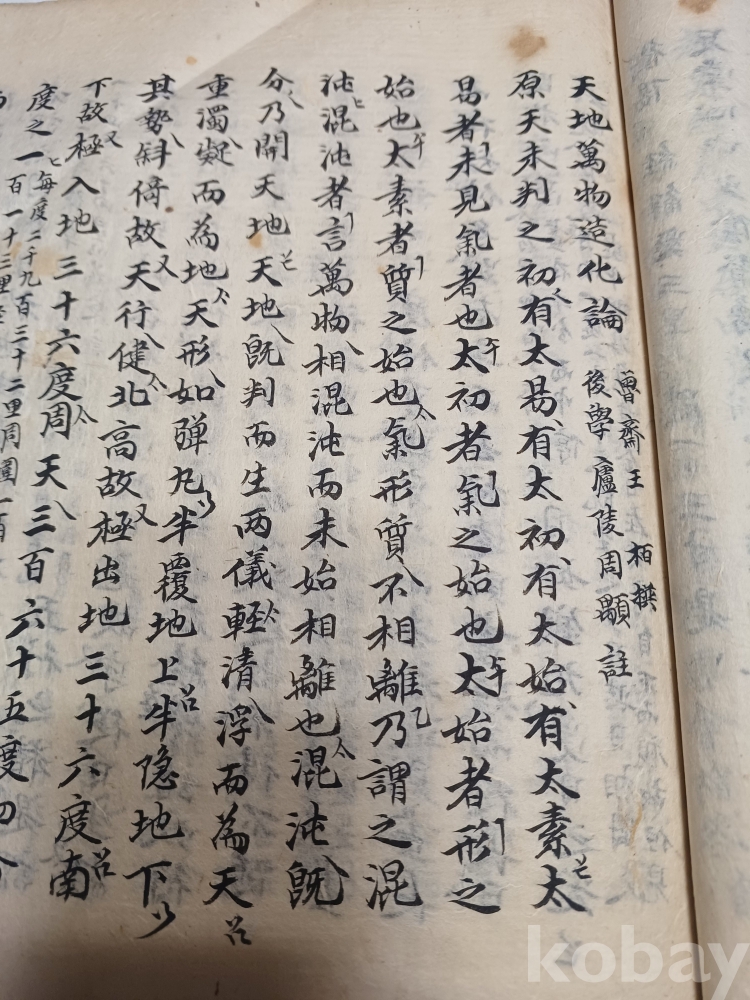 天地萬物造化論
魯齋王 柏撰
後學廬陵周顒註
原天未判之初有太易有太初有太始有太素太
易者未見氣者也太初者氣之始也太始者形之
始也太素者質之始也氣形質不相離乃謂之混
沌混沌者言萬物相混沌而未始相離也混沌既
分乃開天地天地既判而生两儀輕清浮而為天
重濁凝而為地天形如弹丸半覆地上半隐地下
其勢斜倚故天行健北高故極出地三十六度南
下故極入地三十六度周天三百六十五度四分
度之一
每度二千九百三十二里周圍一百
百一十三里
kobay